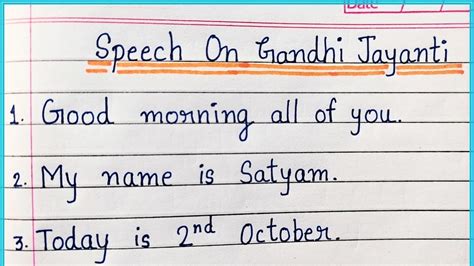 Date
Speech On Gandhi Jayanti
1. Good morning all of you.
2. My name is Satyam.
3. Today is 2nd October.